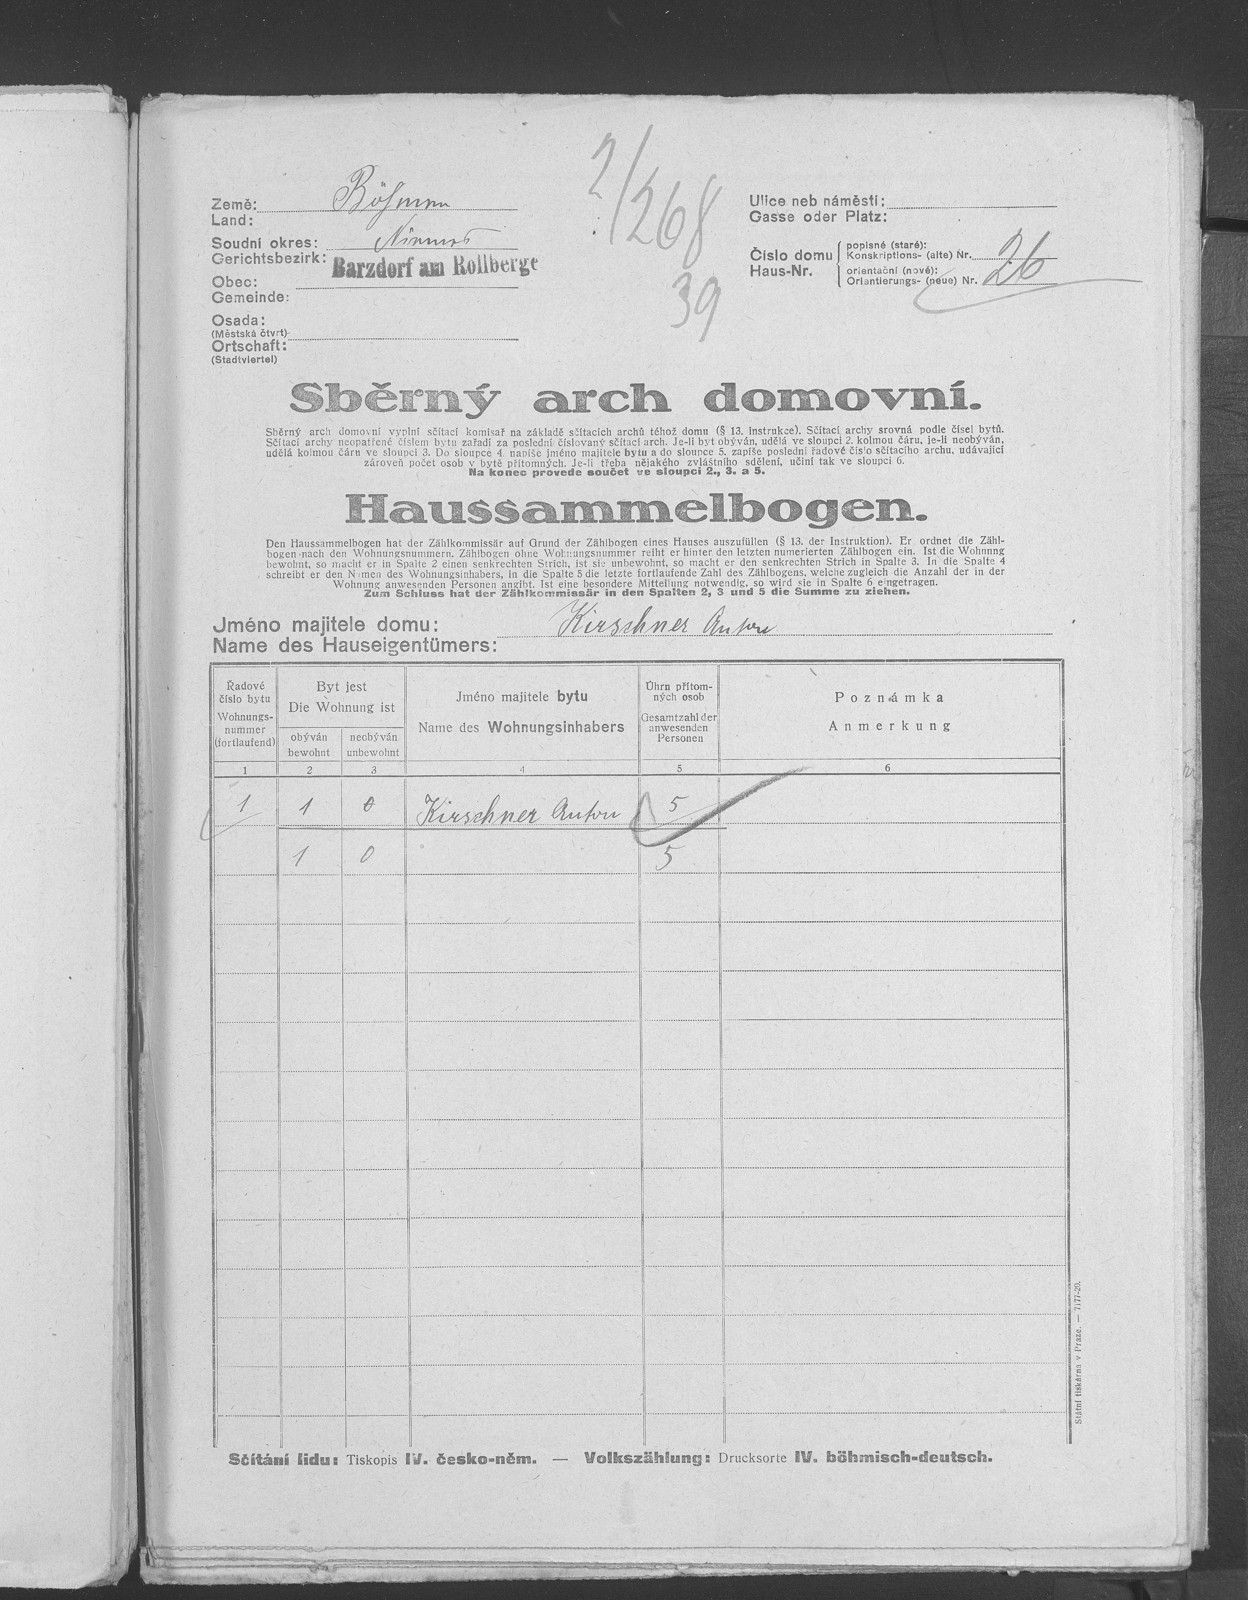 2/268
39
Země: Böhmen
Land:
Soudní okres: Niemes
Gerichtsbezirk:
Barzdorf am Rollberge
Obec:
Gemeinde:
Osada:
(Městská čtvrť)
Ortschaft:
(Stadtviertel)
Ulice neb náměstí:
Gasse oder Platz:
Číslo domu
Haus-Nr.
popisné (staré):
Konskriptions- (alte) Nr.
orientační (nové):
Orientierungs- (neue) Nr.
26
Sběrný arch domovní.
Sběrný arch domovní vyplní sčítací komisař na základě sčítacích archů téhož domu (§ 13. instrukce). Sčítací archy srovná podle čísel bytů.
Sčítací archy neopatřené číslem bytu zařadí za poslední číslovaný sčítací arch. Je-li byt obýván, udělá ve sloupci 2. kolmou čáru, je-li neobýván,
udělá kolmou čáru ve sloupci 3. Do sloupce 4. napíše jméno majitele bytu a do slounce 5. zapíše poslední řadové číslo sčítacího archu, udávající
zároveň počet osob v bytě přítomných. Je-li třeba nějakého zvláštního sdělení, učiní tak ve sloupci 6.
Na konec provede součet ve sloupci 2., 3. a 5.
Haussammelbogen.
Den Haussammelbogen hat der Zählkommissär auf Grund der Zählbogen eines Hauses auszufüllen (§ 13. der Instruktion). Er ordnet die Zähl-
bogen nach den Wohnungsnummern. Zählbogen ohne Wohnungsnummer reiht er hinter den letzten numerierten Zählbogen ein. Ist die Wohnnng
bewohnt, so macht er in Spalte 2 einen senkrechten Strich, ist sie unbewohnt, so macht er den senkrechten Strich in Spalte 3. In die Spalte 4
schreibt er den Namen des Wohnungsinhabers, in die Spalte 5 die letzte fortlaufende Zahl des Zählbogens, welche zugleich die Anzahl der in der
Wohnung anwesenden Personen angibt. Ist eine besondere Mitteilung notwendig, so wird sie in Spalte 6 eingetragen.
Zum Schluss hat der Zählkommissär in den Spalten 2, 3 und 5 die Summe zu ziehen.
Jméno majitele domu: Kirschner Anton
Name des Hauseigentümers:
Řadové
číslo bytu
Wohnungs-
nummer
(fortlaufend)
Byt jest
Die Wohnung ist
obýván
bewohnt
neobýván
unbewohnt
Jméno majitele bytu
Name des Wohnungsinhabers
Úhrn přítom-
ných osob
Gesamtzahl der
anwesenden
Personen
Poznámka
Anmerkung
1 2 3 4 5 6
1 1 0 Kirschner Anton 5
1 0 5
Státní tiskárna v Praze. — 7177-20.
Sčítání lidu: Tiskopis IV. česko-něm. — Volkszählung: Drucksorte IV. böhmisch-deutsch.